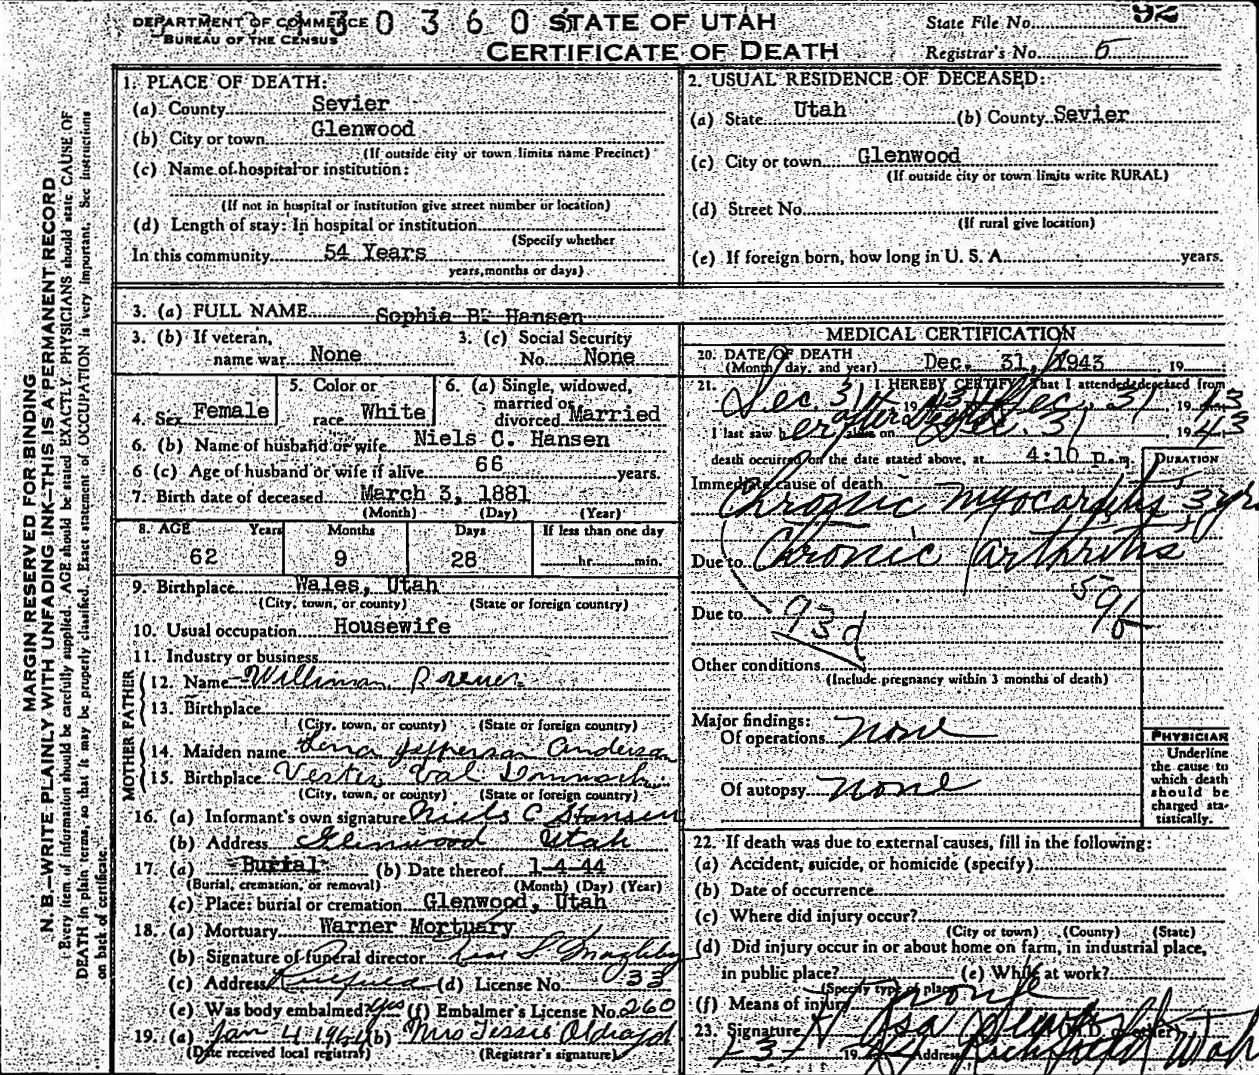 DEPARTMENT OF COMMERCE
BUREAU OF THE CENSUS
0 3 6 0
STATE OF UTAH
CERTIFICATE OF DEATH
State File No. 92
Registrar's No. 5
MARGIN RESERVED FOR BINDING
N. B.—WRITE PLAINLY WITH UNFADING INK—THIS IS A PERMANENT RECORD
Every item of information should be carefully supplied. AGE should be stated EXACTLY. PHYSICIANS should state CAUSE OF
DEATH in plain terms, so that it may be properly classified. Exact statement of OCCUPATION is very important. See instructions
on back of certificate.
1. PLACE OF DEATH:
(a) County Sevier
(b) City or town Glenwood
(If outside city or town limits name Precinct)
(c) Name of hospital or institution:
(If not in hospital or institution give street number or location)
(d) Length of stay: In hospital or institution
(Specify whether
In this community 54 Years
years, months or days)
2. USUAL RESIDENCE OF DECEASED:
(a) State Utah (b) County Sevier
(c) City or town Glenwood
(If outside city or town limits write RURAL)
(d) Street No.
(If rural give location)
(e) If foreign born, how long in U. S. A. years.
3. (a) FULL NAME Sophia B. Hansen
3. (b) If veteran, name war None
3. (c) Social Security No. None
4. Sex Female
5. Color or race White
6. (a) Single, widowed, married or divorced Married
6. (b) Name of husband or wife Niels C. Hansen
6 (c) Age of husband or wife if alive 66 years.
7. Birth date of deceased March 3, 1881
(Month) (Day) (Year)
8. AGE Years Months Days If less than one day
62 9 28 hr. min.
9. Birthplace Wales, Utah
(City, town, or county) (State or foreign country)
10. Usual occupation Housewife
11. Industry or business
FATHER
12. Name William
13. Birthplace
(City, town, or county) (State or foreign country)
MOTHER
14. Maiden name Lena Anderson
15. Birthplace
(City, town, or county) (State or foreign country)
16. (a) Informant's own signature Niels C Hansen
(b) Address Glenwood Utah
17. (a) Burial (b) Date thereof 1-4-44
(Burial, cremation, or removal) (Month) (Day) (Year)
(c) Place: burial or cremation Glenwood, Utah
18. (a) Mortuary Warner Mortuary
(b) Signature of funeral director
(c) Address Richfield (d) License No. 33
(e) Was body embalmed? yes (f) Embalmer's License No. 260
19. (a) Jan 4 1944 (b) Mrs Tessie
(Date received local registrar) (Registrar's signature)
MEDICAL CERTIFICATION
20. DATE OF DEATH
(Month, day, and year) Dec. 31, 1943 19
21. I HEREBY CERTIFY That I attended deceased from
Dec. 31 1943 Dec. 31, 1943
I last saw her after death alive on Dec. 31 1943
death occurred on the date stated above, at 4:10 p.m.
DURATION
Immediate cause of death
Chronic myocarditis 3 yrs
Due to Chronic arthritis
Due to 93d
Other conditions
(Include pregnancy within 3 months of death)
Major findings:
Of operations none
Of autopsy none
PHYSICIAN
Underline
the cause to
which death
should be
charged sta-
tistically.
22. If death was due to external causes, fill in the following:
(a) Accident, suicide, or homicide (specify)
(b) Date of occurrence
(c) Where did injury occur?
(City or town) (County) (State)
(d) Did injury occur in or about home on farm, in industrial place,
in public place? (e) While at work?
(Specify type of place)
(f) Means of injury none
23. Signature
19 Address Richfield Utah